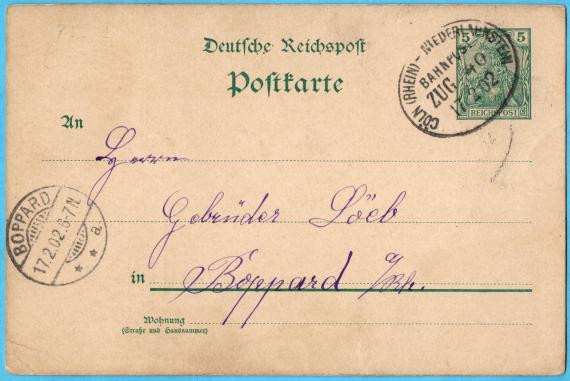 Deutsche Reichspost
Postkarte
5 5
REICHSPOST
CÖLN (RHEIN) - NIEDERLAHNSTEIN
BAHNPOST
ZUG 40
17.2.02
An
Herrn
Gebrüder Löeb
in Boppard a/Rh.
BOPPARD
17.2.02.6-7N.
* * a
Wohnung
(Straße und Hausnummer)